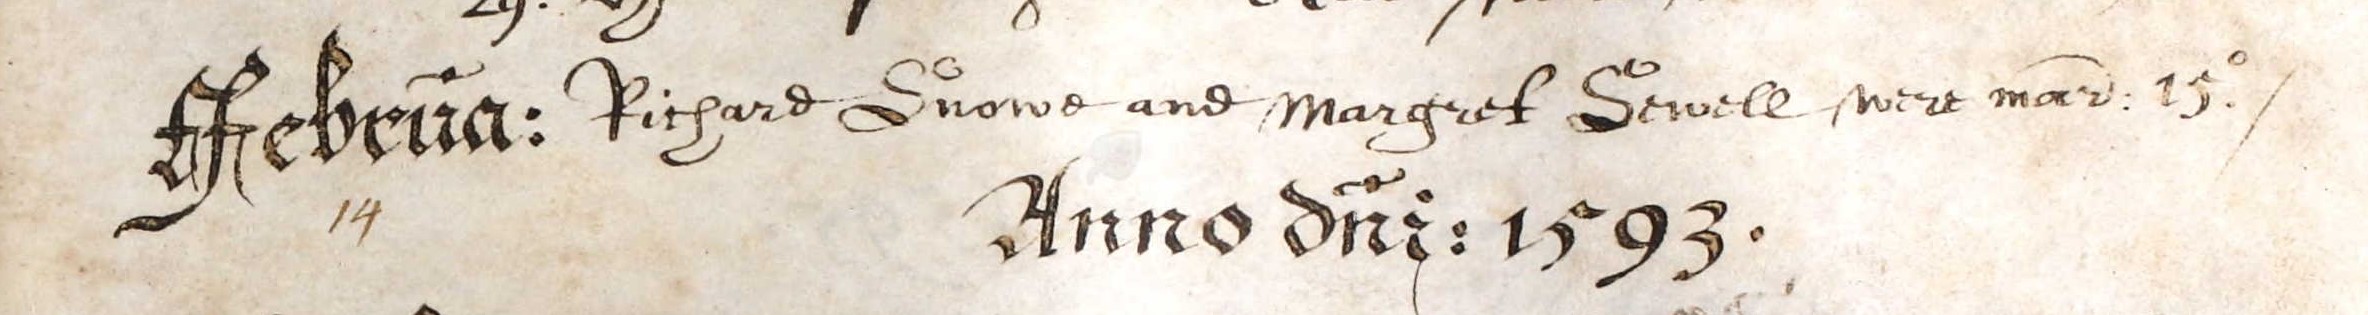 ffebrũa: Richard Snowe and Margret Sewell were mar̃d: 15°. /
14
Anno dñi: 1593.